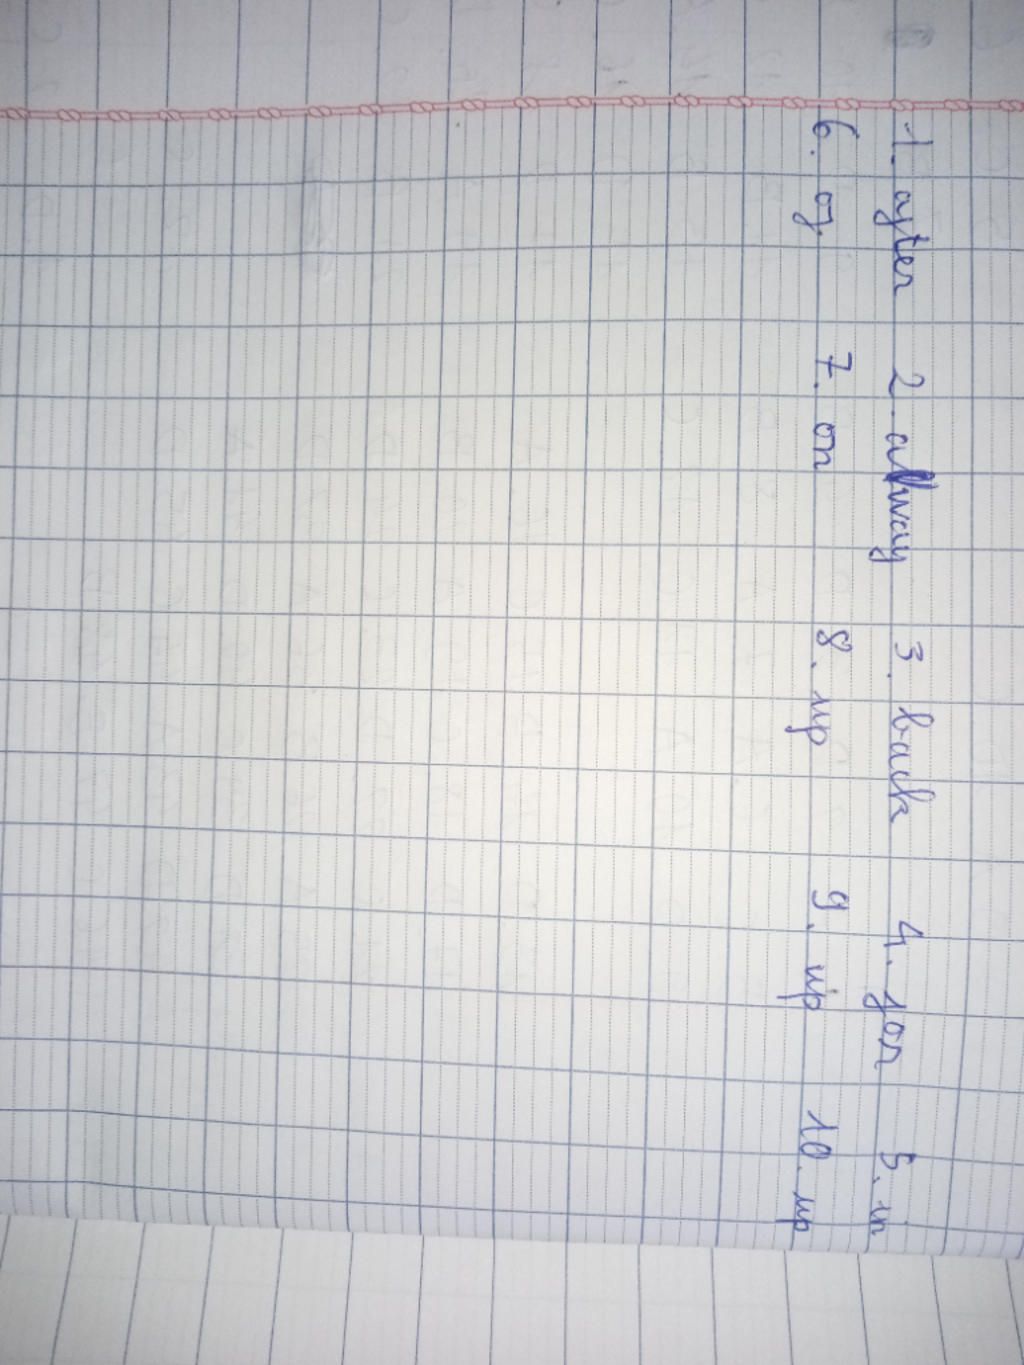 1. after 2. away 3. back 4. for 5. in
6. of 7. on 8. up 9. up 10. up